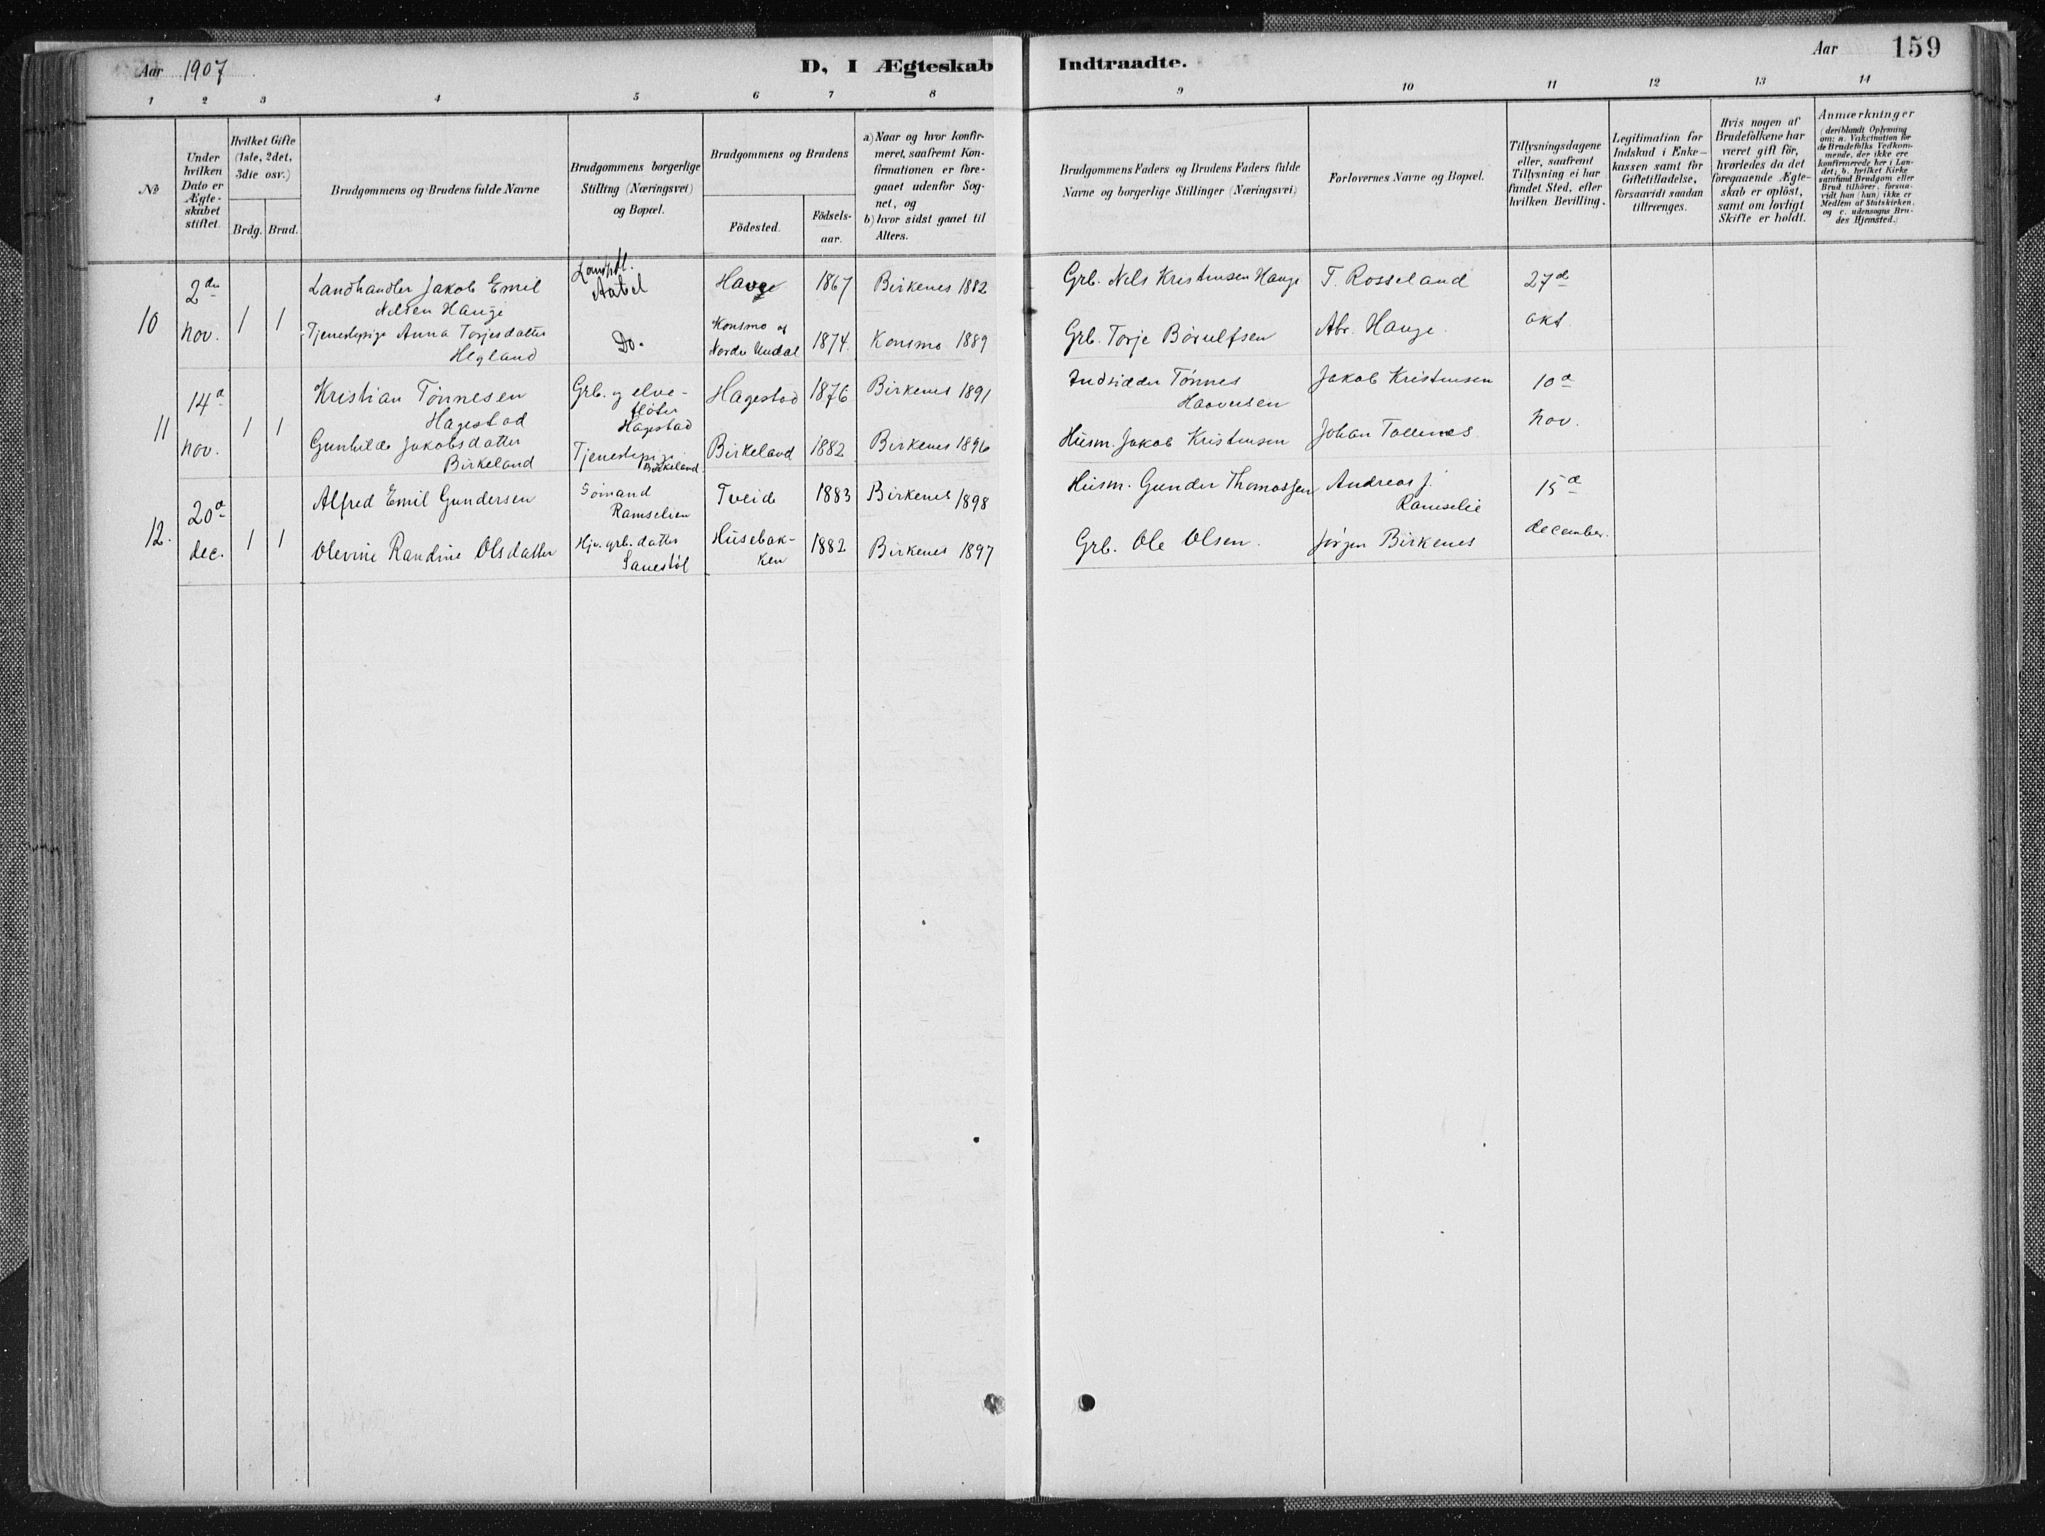 Aar 1907
D, I Ægteskab Indtraadte.
Aar 159
1 2 3 4 5 6 7 8 9 10 11 12 13 14
No
Under
hvilken
Dato er
Ægte-
skabet
stiftet.
Hvilket Gifte
(1ste, 2det,
3die osv.)
Brdg. Brud.
Brudgommens og Brudens fulde Navne
Brudgommens borgerlige
Stilling (Næringsvei)
og Bopæl.
Brudgommens og Brudens
Födested.
Födsels-
aar.
a) Naar og hvor konfir-
meret, saafremt Kon-
firmationen er fore-
gaaet udenfor Sog-
net, og
b) hvor sidst gaaet til
Alters.
Brudgommens Faders og Brudens Faders fulde
Navne og borgerlige Stillinger (Næringsvei)
Forlovernes Navne og Bopæl.
Tillysningsdagene
eller, saafremt
Tillysning ei har
fundet Sted, efter
hvilken Bevilling.
Legitimation for
Indskud i Enke-
kassen samt for
Giftetilladelse,
forsaavidt saadan
tiltrænges.
Hvis nogen af
Brudefolkene har
været gift för,
hvorledes da det
foregaaende Ægte-
skab er oplöst,
samt om lovligt
Skifte er holdt.
Anmærkninger
(deriblandt Oplysning
om: a. Vakcination for
de Brudefolks Vedkom-
mende, der ikke ere
konfirmerede her i Lan-
det; b. hvilket Kirke
samfund Brudgom eller
Brud tilhörer, forsaa-
vidt han (hun) ikke er
Medlem af Statskirken,
og c. udensogns Bru-
des Hjemsted.)
10
2den
nov.
1 1
Landhandler Jakob Emil
Nilsen Hauge
Aabel
Hauge 1867 Birkenes 1882
Grb. Nels Kristensen Hauge
T. Rosseland
27de
okt.
Tjenestepige Anna Torjesdatter
Hegland
Do.
Konsmo og
Nordre Undal
1874. Konsmo 1889
Grb. Torje Børulfsen
Abr. Hauge.
11
14de
nov.
1 1
Kristian Tønnesen
Hagestad
Grb. og elve-
fløter
Hagestad
Hagestad 1876 Birkenes 1891
Indsidder Tønnes
Haaversen
Jakob Kristensen
10de
nov.
Gunhilde Jakobsdatter
Birkeland
Tjenestepige
Birkeland
Birkeland 1882 Birkenes 1896
Husm. Jakob Kristensen
Johan Tollenes
12.
20de
dec.
1 1
Alfred Emil Gundersen
Sømand
Ramselien
Tveide 1883 Birkenes 1898
Husm. Gunder Thomassen
Andreas J.
Ramselie
15de
december.
Olevine Randine Olsdatter
Hjv. grb. datter
Husebak-
ken
1882 Birkenes 1897
Grb. Ole Olsen.
Jørgen Birkenes